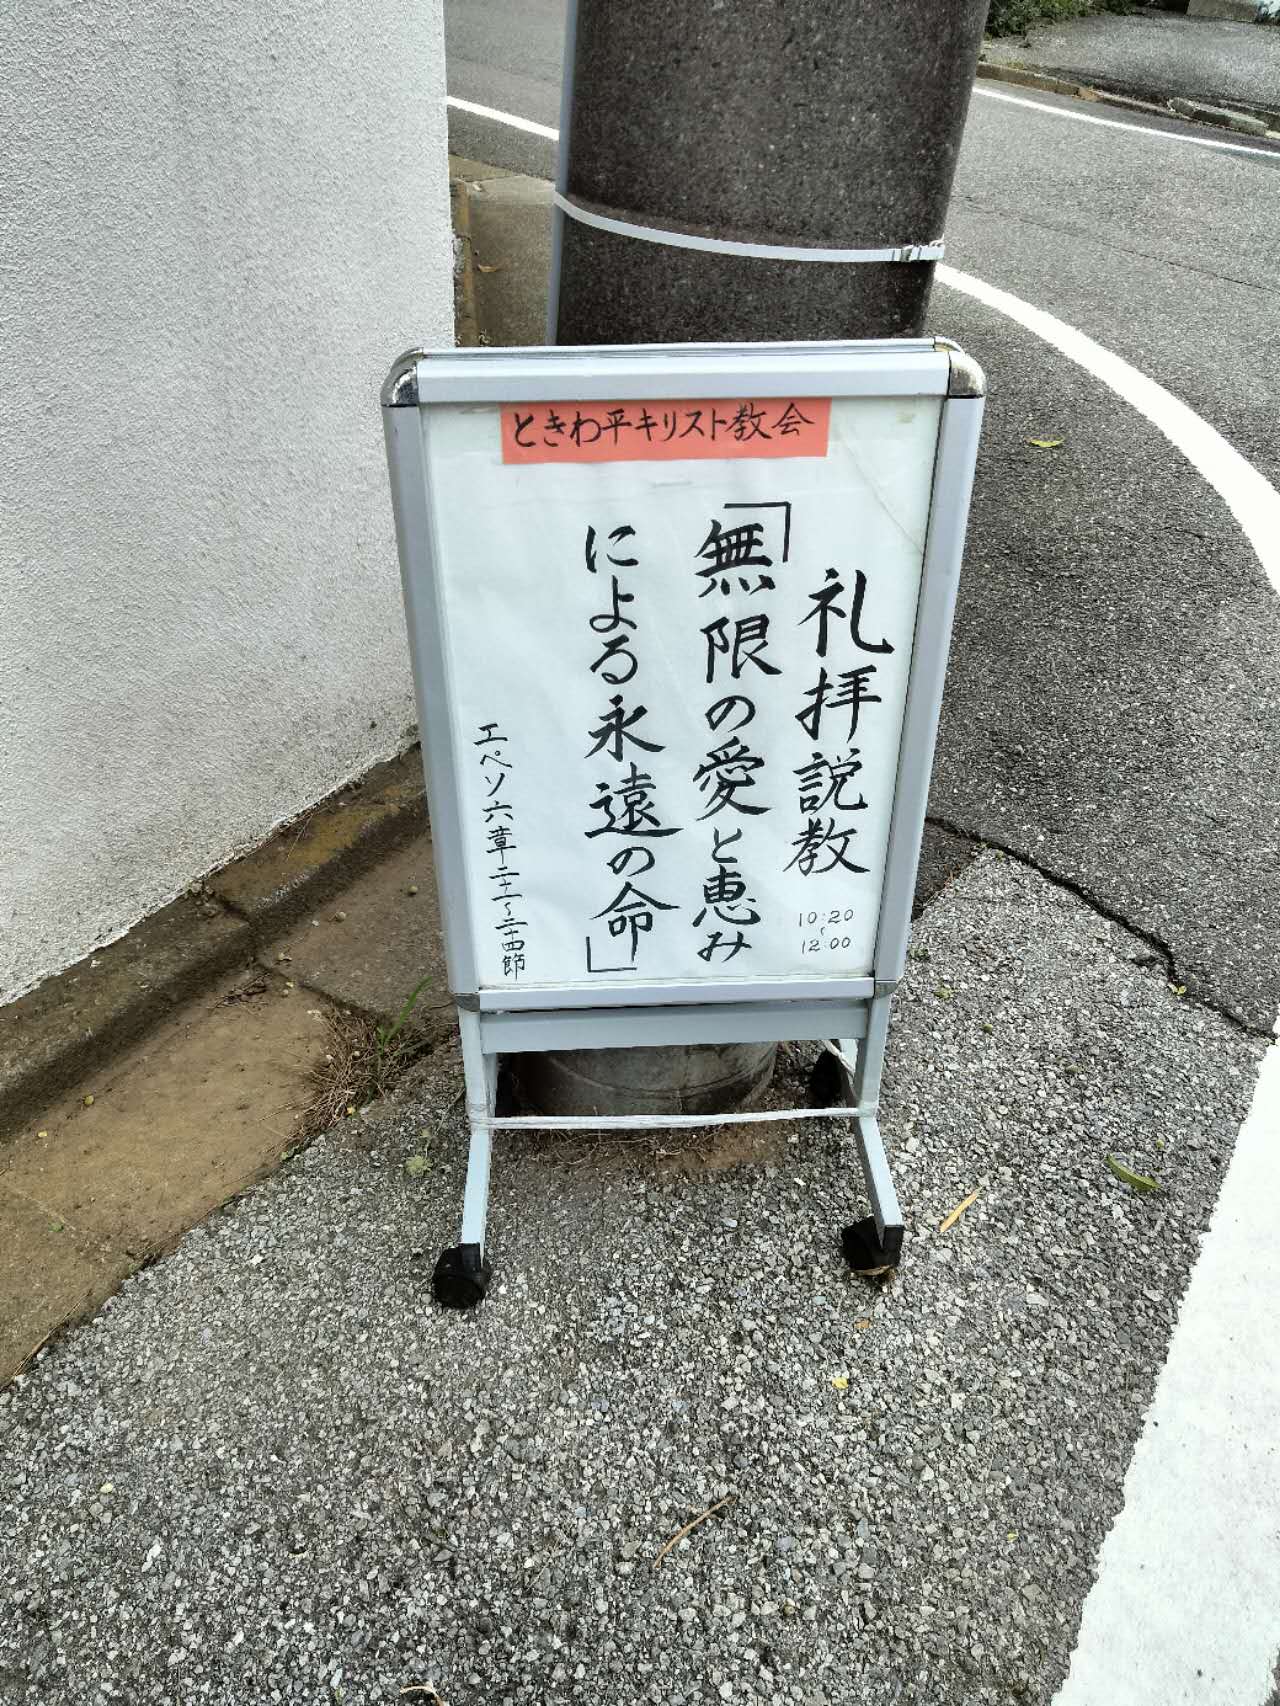 ときわ平キリスト教会
礼拝説教
10:20
〜
12:00
「無限の愛と恵み
による永遠の命」
エペソ六章二十一〜二十四節